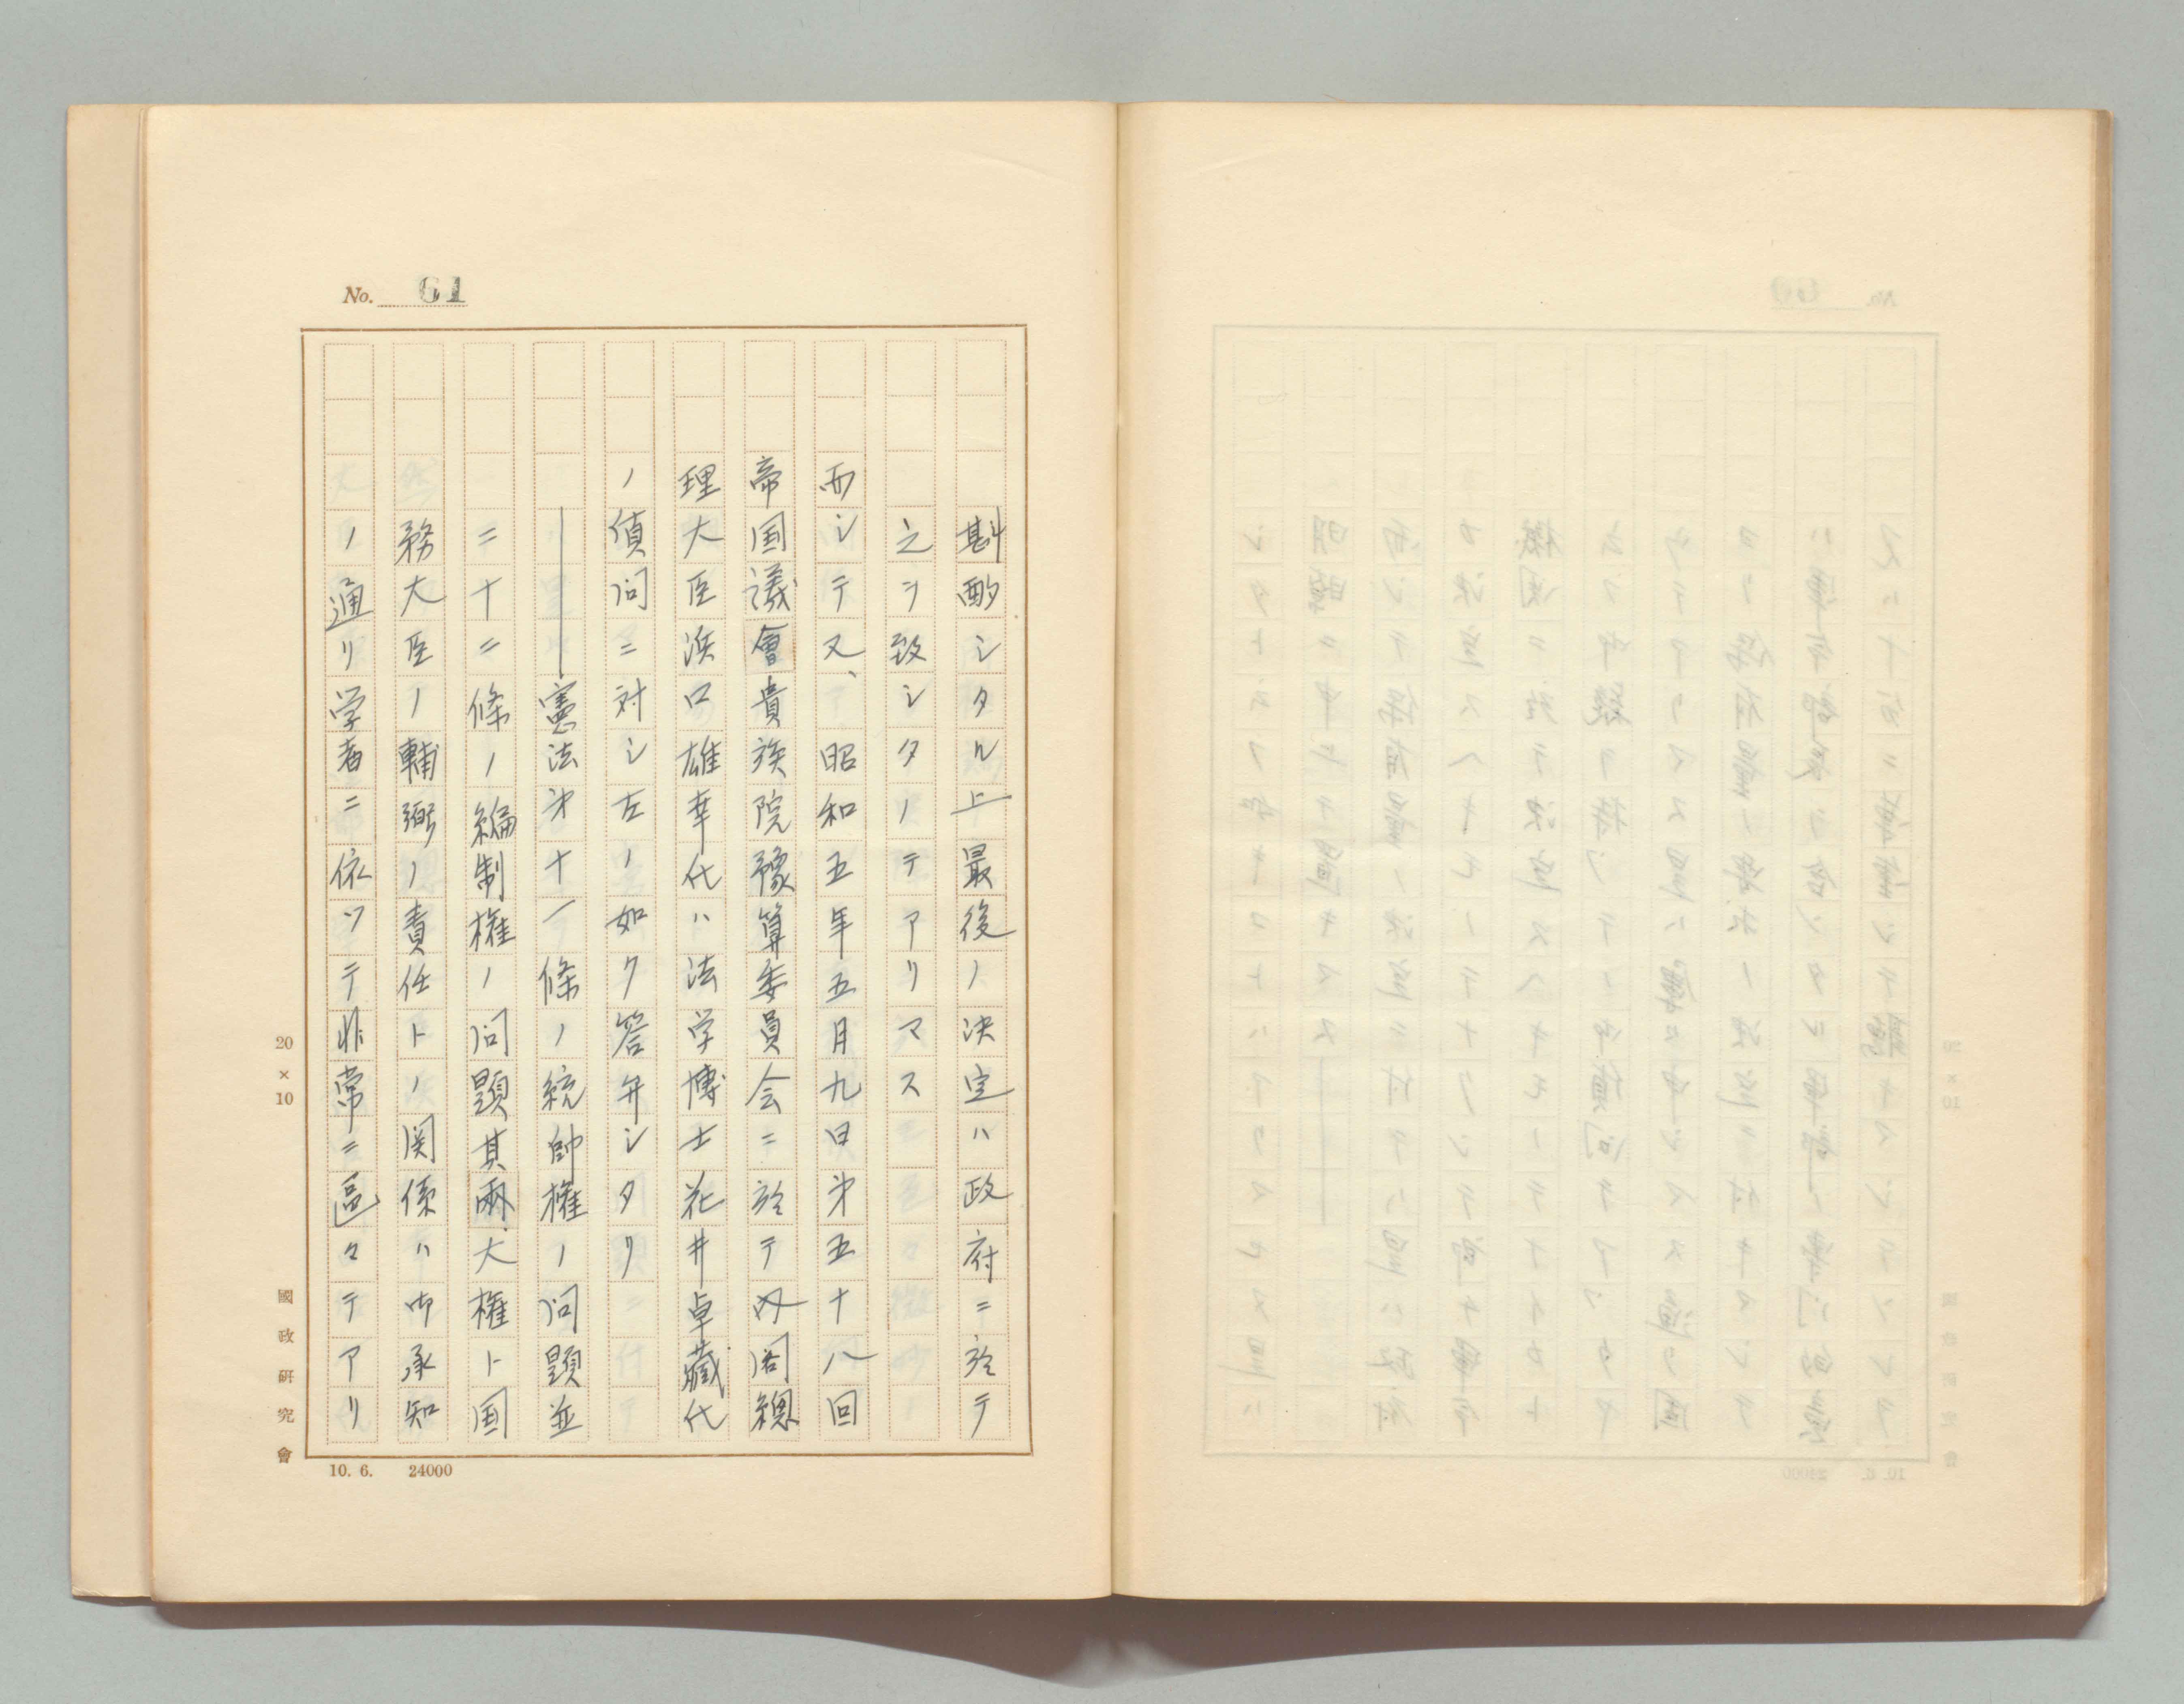 No. 61
斟酌シタル上最後ノ決定ハ政府ニ於テ
之ヲ致シタノテアリマス
而シテ又、昭和五年五月九日第五十八回
帝国議會貴族院豫算委員会ニ於テ内閣総
理大臣浜口雄幸代ハ法学博士花井卓藏代
ノ質問ニ対シ左ノ如ク答弁シタリ
―――憲法第十一條ノ統帥権ノ問題並
ニ十二條ノ編制権ノ問題其両大権ト国
務大臣ノ輔弼ノ責任トノ関係ハ御承知
ノ通リ学者ニ依ツテ非常ニ區々テアリ
20×10
國政研究會
10. 6. 24000